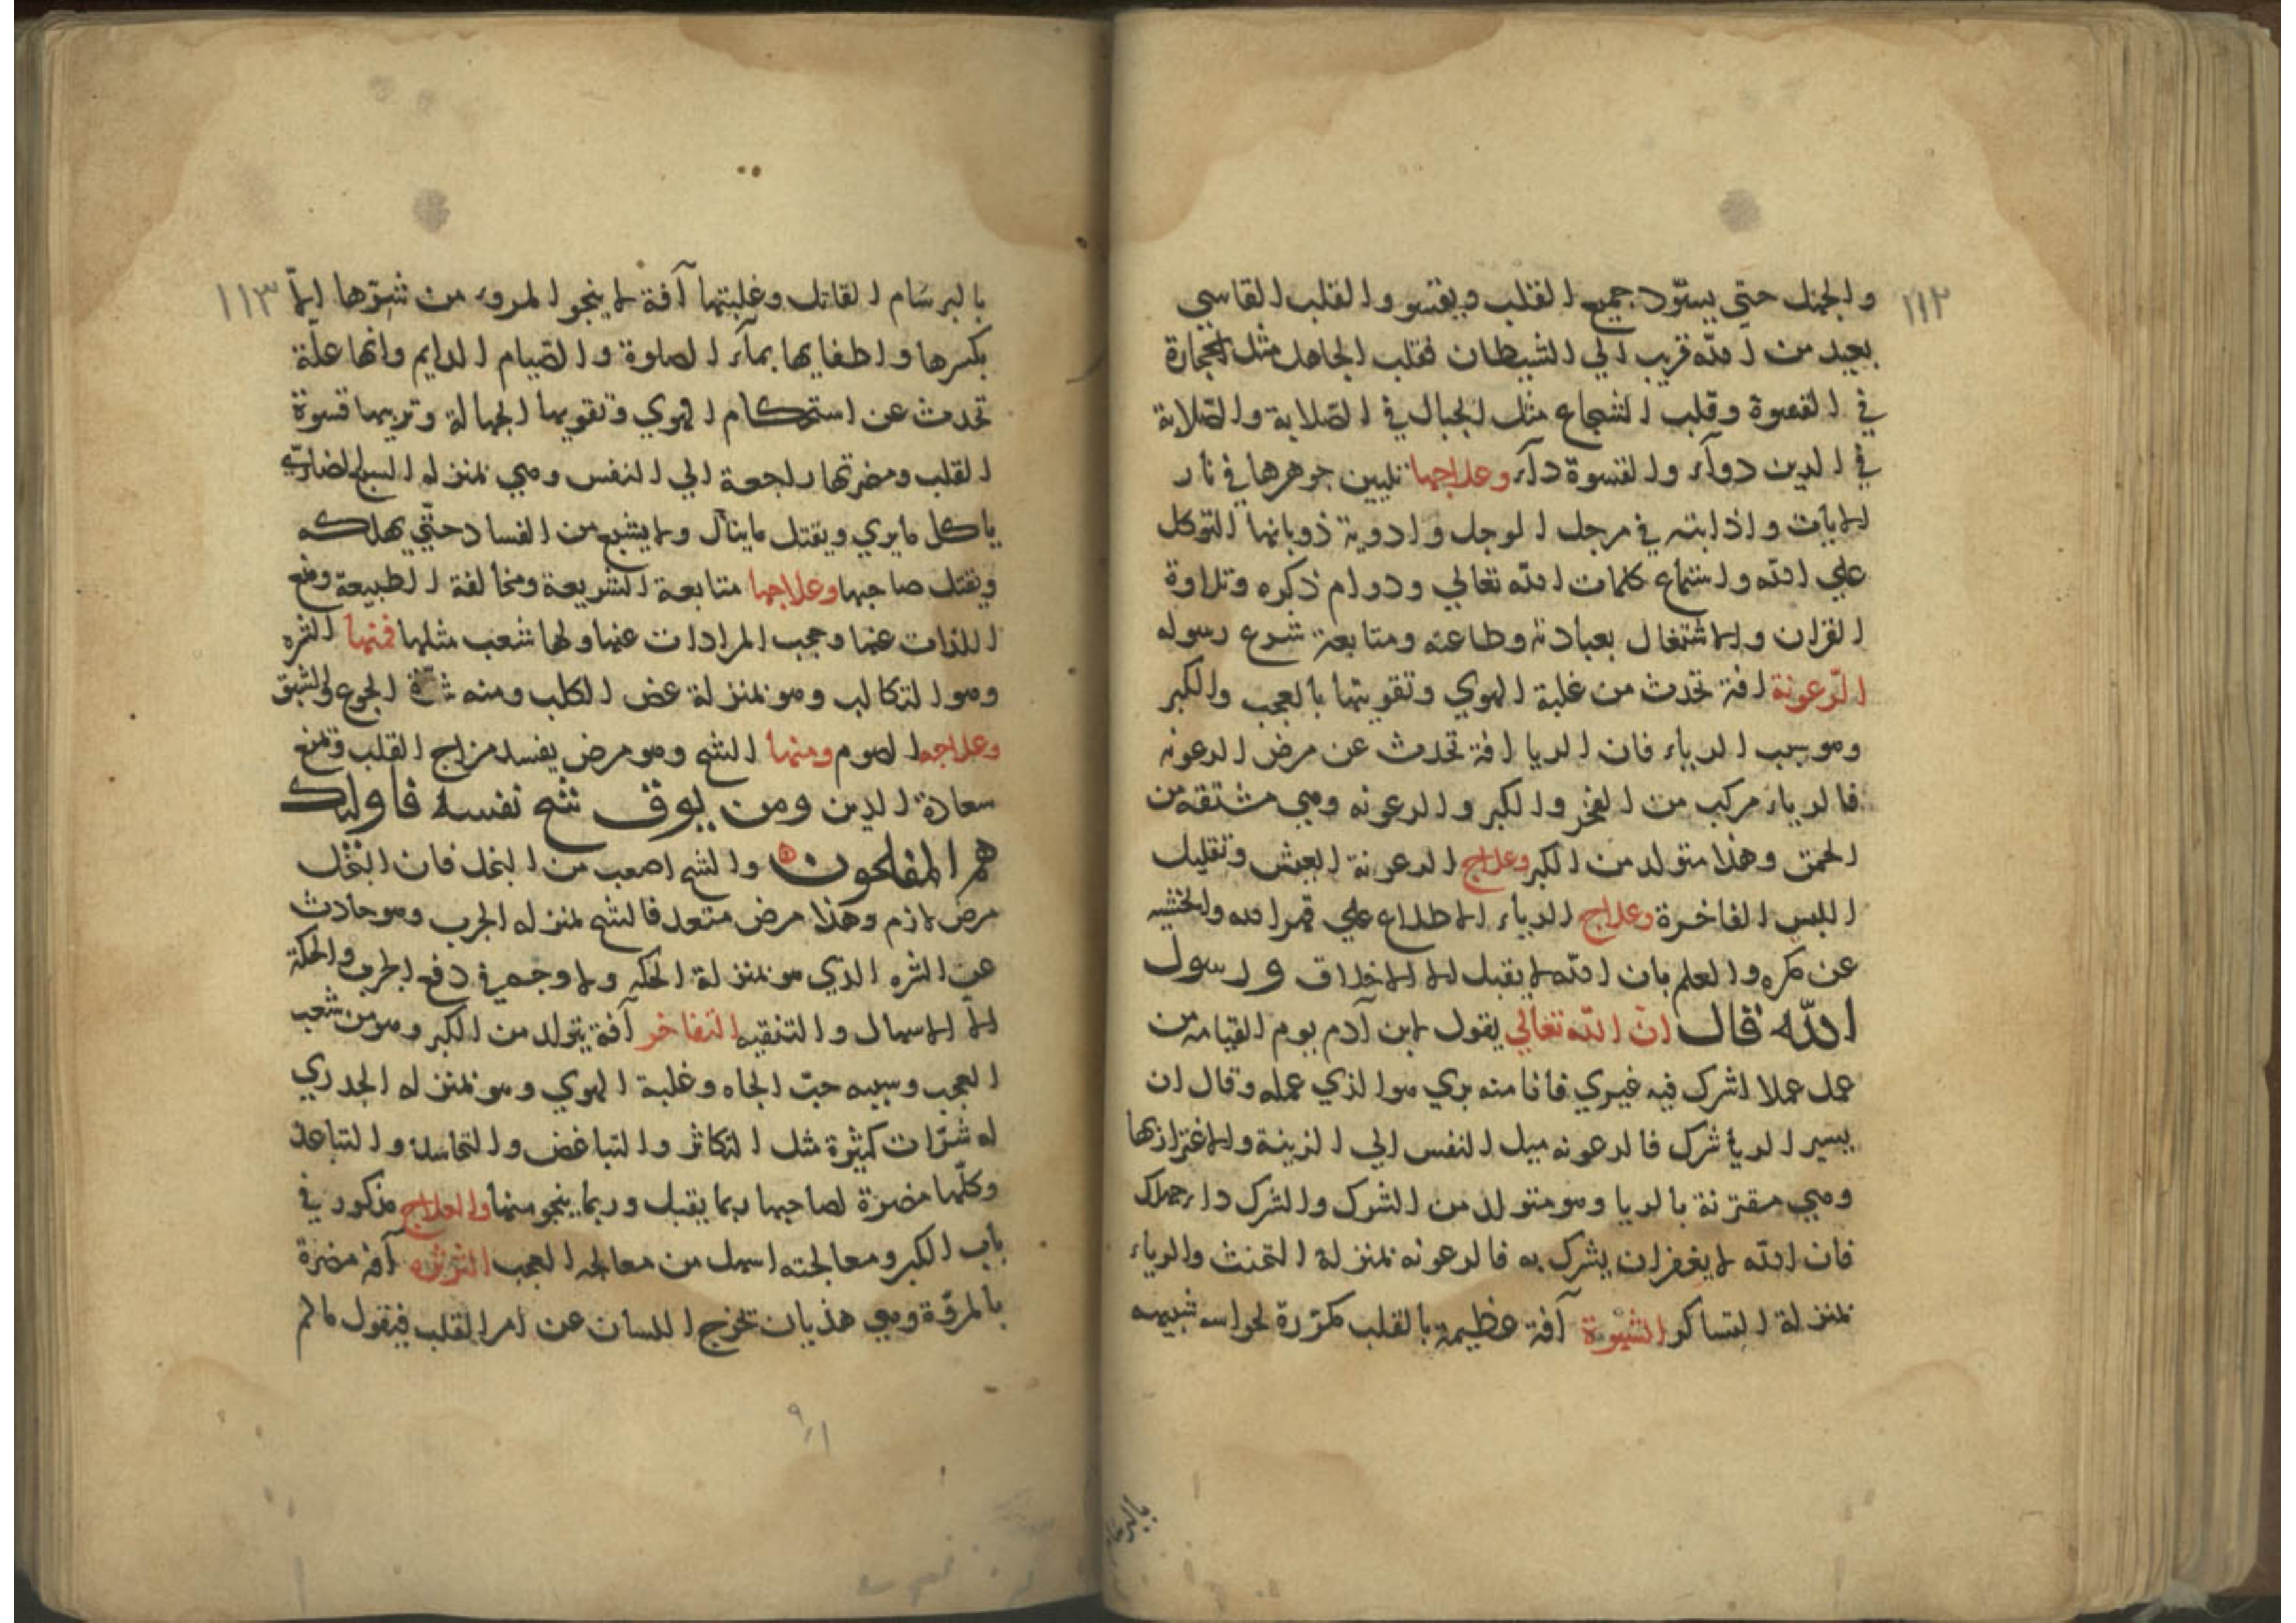 ١١٢
والجهل حتى يسود جميع القلب ويقسو والقلب القاسي
بعيد من الله قريب الي الشيطان فقلب الجاهل مثل الحجارة
في القسوة وقلب الشجاع مثل الجبال في الصلابة والصلابة
في الدين دوآء والقسوة دآء وعلاجها تليين جوهرها في نار
الايات واذابته في مرجل الوجل وادوية ذوبانها التوكل
علي الله واستماع كلمات الله تعالي ودوام ذكره وتلاوة
القران والاشتغال بعبادته وطاعته ومتابعة شرع رسوله
الرّعونة افة تحدث من غلبة الهوي وتقويتها بالعجب والكبر
وهو سبب الرياء فان الريا افة تحدث عن مرض الرعونه
فالرياء مركب من الفخر والكبر والرعونه وهي مشتقه من
الحمق وهذا متولد من الكبر وعلاج الرعونة العيش وتقليل
اللبس الفاخرة وعلاج الرياء الاطلاع علي قهر الله والخشيه
عن مكره والعلم بان الله لا يقبل الا الاخلاق ورسول
الله قال انّ الله تعالي يقول لابن آدم يوم القيامه من
عمل عملا اشرك فيه غيري فانا منه بري هو الذي عمله وقال ان
يسير الريا شرك فالرعونه ميل النفس الي الزينة والاغترار بها
وهي مقترنة بالريا وهو متولد من الشرك والشرك داء مهلك
فان الله لا يغفر ان يشرك به فالرعونه بمنزلة التخنث والرياء
بمنزلة التساكر الشهوة آفة عظيمة بالقلب مكدّرة لحواسه شبيهه
١١٣
بالبرسام القاتل وغلبتها آفة لا ينجو المروء من شرّها الاّ
بكسرها واطفايها بمآء الصلوة والصيام الدايم وانها علّة
تحدث عن استحكام الهوي وتقويها الجهالة وتربيها قسوة
القلب ومضرتها راجعة الي النفس وهي بمنزله السبع الضاري
ياكل ما يري ويقتل ما ينال ولا يشبع من الفساد حتّي يهلكه
ويقتل صاحبها وعلاجها متابعة الشريعة ومخالفة الطبيعة ومنع
اللذات عنها وحجب المرادات عنها ولها شعب مثلها فمنها الشره
وهو التكالب وهو بمنزلة عض الكلب ومنه شدّة الجوع والشبق
وعلاجه الصوم ومنها الشح وهو مرض يفسد مزاج القلب وتمنع
سعادة الدين ومن يوق شح نفسه فاولئك
هم المفلحون والشح اصعب من البخل فان البخل
مرض لازم وهذا مرض متعد فالشح بمنزله الجرب وهو حادث
عن الشره الذي هو بمنزلة الحكه ولا وجه في دفع الجرب والحكة
الا الاسهال والتنقيه التفاخر آفة يتولد من الكبر وهو من شعب
العجب وسببه حبّ الجاه وغلبة الهوي وهو بمنزله الجدري
له شرّات كثيرة مثل التكاثر والتباغض والتحاسد والتباعد
وكلّها مضرة لصاحبها ربما يقبل وربما ينجو منها والعلاج مذكور في
باب الكبر ومعالجته اسهل من معالجه العجب الثرثره آفه مضرة
بالمروّة وهي هذيان تخرج اللسان عن امر القلب فيقول مالم